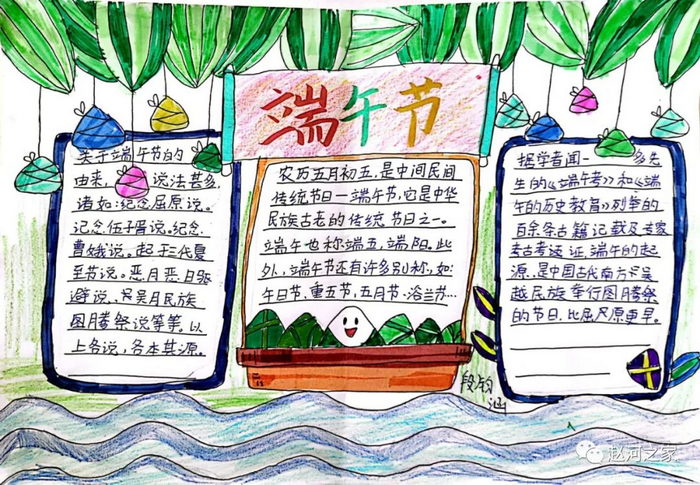 端午节
关于端午节的
由来, 说法甚多,
诸如:纪念屈原说。
记念伍子胥说。纪念
曹娥说。起于三代夏
至节说。恶月恶日驱
避说、吴月民族
图腾祭说等等。以
上各说,各本其源。
农历五月初五,是中间民间
传统节日一端午节,它是中华
民族古老的传统节日之一。
端午也称端五,端阳。此
外,端午节还有许多别称,如:
午日节、重五节,五月节·浴兰节…
据学者闻一多先
生的《端午考》和《端
午的历史教育》列举的
百余条古籍记载及专家
考古考 证,端午的起
源,是中国古代南方吴
越民族举行图腾祭
的节日,比屈原更早。
段钧
涵
赵河之家